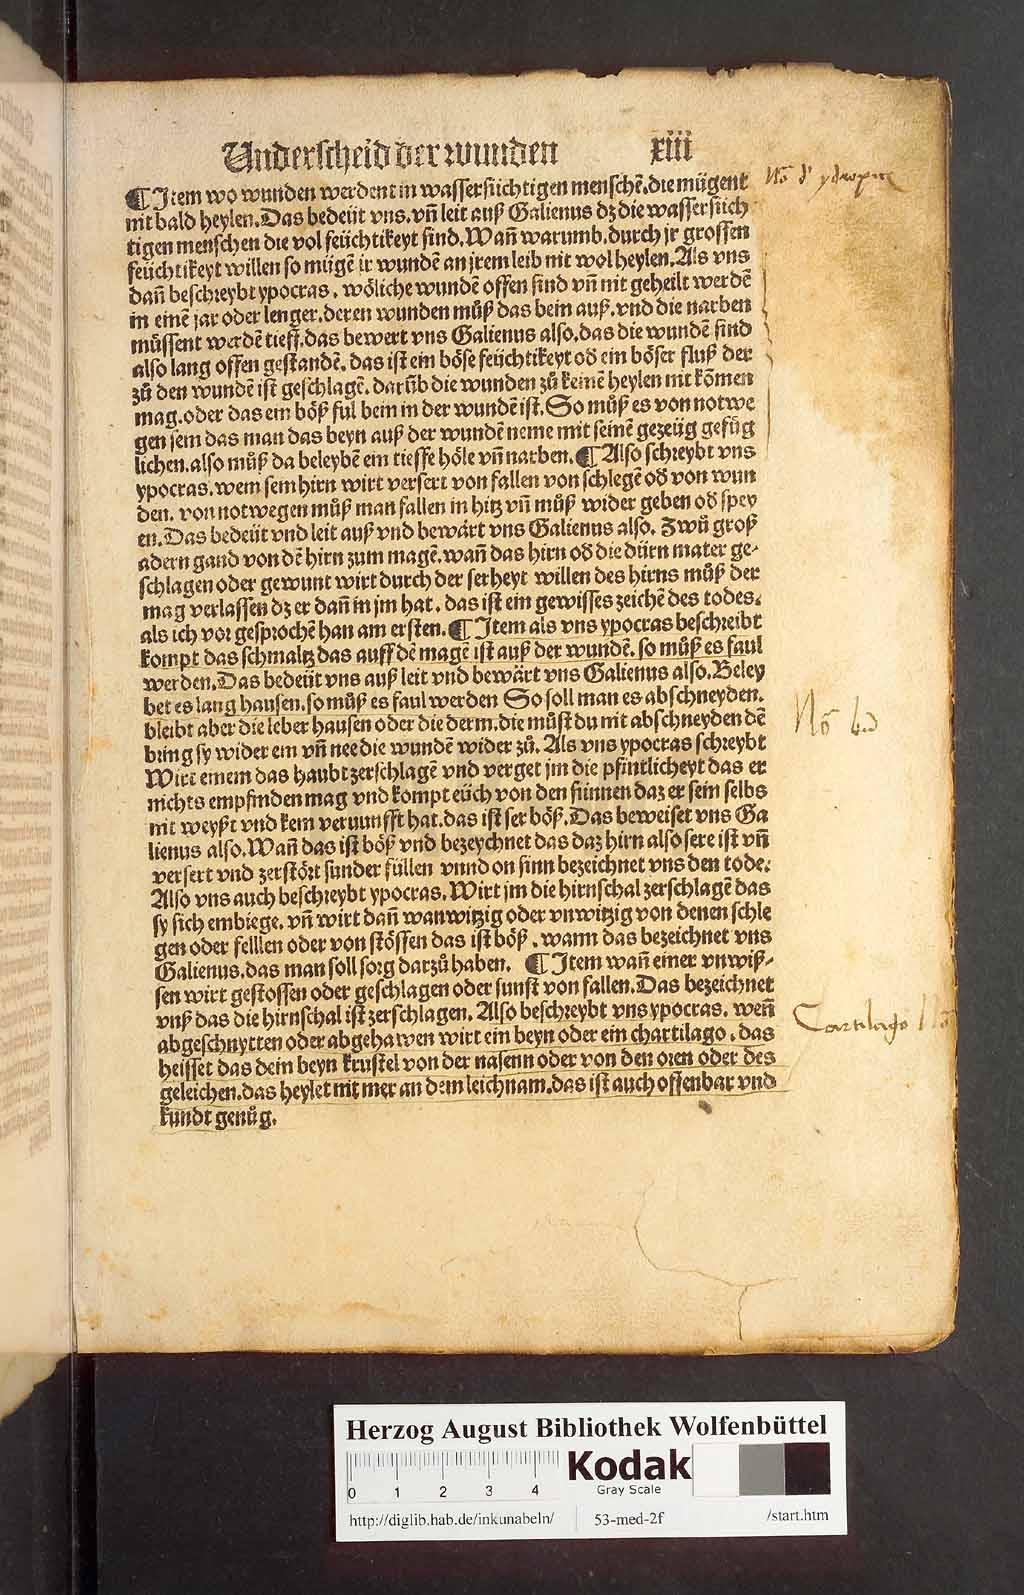 Underscheid der wunden xiii
¶ Item wo wunden werdent in wassersüchtigen menschē. die mügent
nit bald heylen. Das bedeüt vns. vn̄ leit auß Galienus dz die wassersüch
tigen menschen die vol feüchtikeyt sind. Wan̄ warumb. durch jr grossen
feüchtikeyt willen so mügē ir wundē an jrem leib nit wol heylen. Als vns
dan̄ beschreybt ypocras. wöliche wundē offen sind vn̄ nit geheilt werdē
in einē jar oder lenger. deren wunden muͦß das bein auß. vnd die narben
müssent werdē tieff. das bewert vns Galienus also. das die wundē sind
also lang offen gestandē. das ist ein böse feüchtikeyt od ein böser fluß der
zuͦ den wundē ist geschlagē. darūb die wunden zuͦ keinē heylen nit kōmen
mag. oder das ein böß ful bein in der wundē ist. So muͦß es von notwe
gen sein das man das beyn auß der wundē neme mit seinē gezeüg gefüg
lichen. also muͦß da beleybē ein tieffe höle vn̄ narben. ¶ Also schreybt vns
ypocras. wem sein hirn wirt versert von fallen von schlegē od von wun
den. von notwegen muͦß man fallen in hitz vn̄ muͦß wider geben od spey
en. Das bedeüt vnd leit auß vnd bewärt vns Galienus also. Zwuͦ groß
adern gand von dē hirn zum magē. wan̄ das hirn od die dürn mater ge⸗
schlagen oder gewunt wirt durch der serheyt willen des hirns muͦß der
mag verlassen dz er dan̄ in jm hat. das ist ein gewisses zeichē des todes.
als ich vor gesprochē han am ersten. ¶ Item als vns ypocras beschreibt
kompt das schmaltz das auff dē magē ist auß der wundē. so muͦß es faul
werden. Das bedeüt vns auß leit vnd bewärt vns Galienus also. Beley
bet es lang haußen. so muͦß es faul werden So soll man es abschneyden.
bleibt aber die leber haußen oder die derm. die muͦst du nit abschneyden dē
bring sy wider ein vn̄ nee die wundē wider zuͦ. Als vns ypocras schreybt
Wirt einem das haubt zerschlagē vnd verget jm die pfintlicheyt das er
nichts empfinden mag vnd kompt eüch von den sinnen daz er sein selbs
nit weyßt vnd kein vernunfft hat. das ist ser böß. Das beweiset vns Ga
lienus also. Wan̄ das ist böß vnd bezeychnet das daz hirn also sere ist vn̄
versert vnd zerstört sunder füllen vnnd on sinn bezeichnet vns den tode.
Also vns auch beschreybt ypocras. Wirt jm die hirnschal zerschlagē das
sy sich embiege. vn̄ wirt dan̄ wanwitzig oder vnwitzig von denen schle
gen oder fellen oder von stössen das ist böß. wann das bezeichnet vns
Galienus. das man soll sorg darzuͦ haben. ¶ Item wan̄ einer vnwiß⸗
sen wirt gestossen oder geschlagen oder sunst von fallen. Das bezeichnet
vnß das die hirnschal ist zerschlagen. Also beschreybt vns ypocras. wen̄
abgeschnytten oder abgehawen wirt ein beyn oder ein chartilago. das
heisset das dein beyn krustel von der nasenn oder von den oren oder des
geleichen. das heylet nit mer an dem leichnam. das ist auch offenbar vnd
kundt genuͦg.
Cartilago
Herzog August Bibliothek Wolfenbüttel
0 1 2 3 4
Kodak
Gray Scale
http://diglib.hab.de/inkunabeln/ 53-med-2f /start.htm